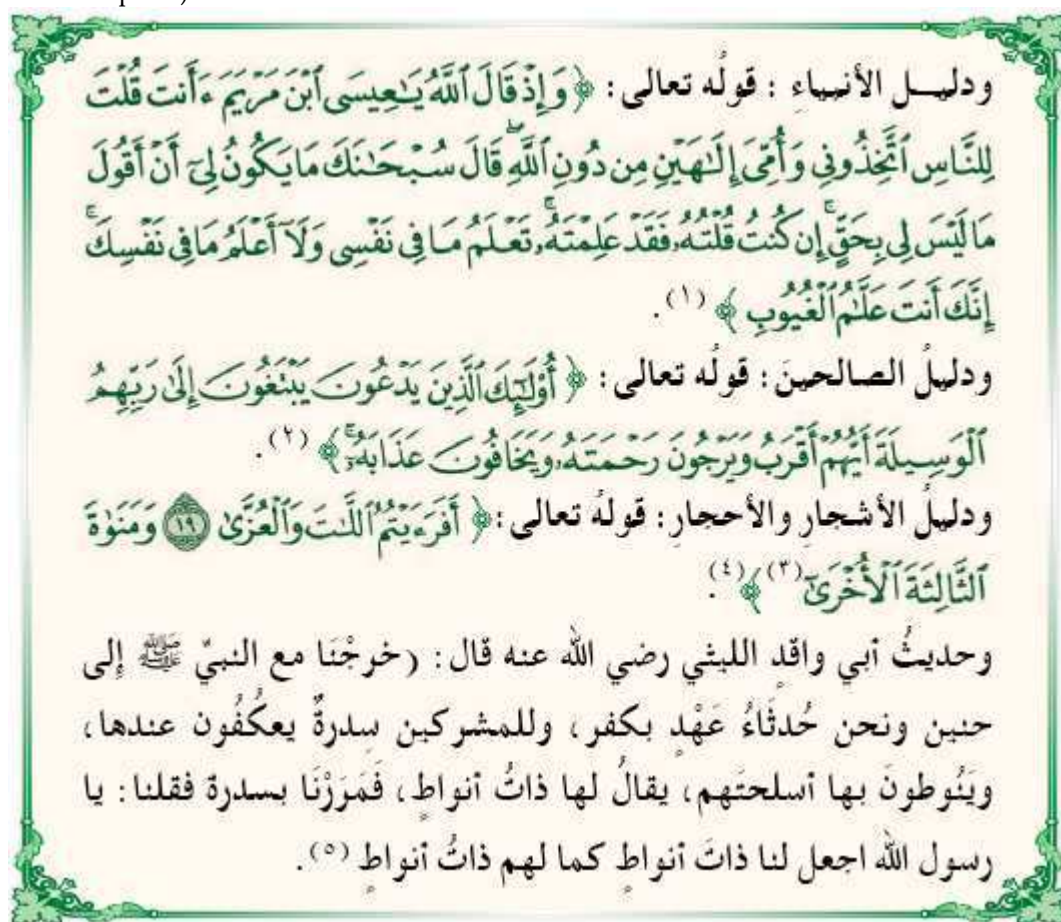 ودليل الأنبياء : قولُه تعالى : ﴿ وَإِذْ قَالَ ٱللَّهُ يَٰعِيسَى ٱبْنَ مَرْيَمَ ءَأَنتَ قُلْتَ
لِلنَّاسِ ٱتَّخِذُونِي وَأُمِّيَ إِلَٰهَيْنِ مِن دُونِ ٱللَّهِۖ قَالَ سُبْحَٰنَكَ مَا يَكُونُ لِيٓ أَنْ أَقُولَ
مَا لَيْسَ لِي بِحَقٍّۚ إِن كُنتُ قُلْتُهُۥ فَقَدْ عَلِمْتَهُۥۚ تَعْلَمُ مَا فِي نَفْسِي وَلَآ أَعْلَمُ مَا فِي نَفْسِكَۚ
إِنَّكَ أَنتَ عَلَّٰمُ ٱلْغُيُوبِ ﴾ (١).
ودليلُ الصالحينَ : قولُه تعالى : ﴿ أُوْلَٰٓئِكَ ٱلَّذِينَ يَدْعُونَ يَبْتَغُونَ إِلَىٰ رَبِّهِمُ
ٱلْوَسِيلَةَ أَيُّهُمْ أَقْرَبُ وَيَرْجُونَ رَحْمَتَهُۥ وَيَخَافُونَ عَذَابَهُۥٓۚ ﴾ (٢).
ودليلُ الأشجارِ والأحجارِ : قولهُ تعالى : ﴿ أَفَرَءَيْتُمُ ٱللَّٰتَ وَٱلْعُزَّىٰ ١٩ وَمَنَوٰةَ
ٱلثَّالِثَةَ ٱلْأُخْرَىٰٓ (٣) ﴾ (٤).
وحديثُ أبي واقدٍ الليثي رضي الله عنه قال : (خرجْنَا مع النبيّ ﷺ إلى
حنين ونحن حُدثَاءُ عَهْدٍ بكفر، وللمشركين سِدرةٌ يعكُفُون عندها،
ويَنُوطونَ بها أسلحتَهم، يقالُ لها ذاتُ أنواطٍ، فَمَرَرْنَا بسدرة فقلنا : يا
رسول الله اجعل لنا ذاتَ أنواطٍ كما لهم ذاتُ أنواطٍ (٥).